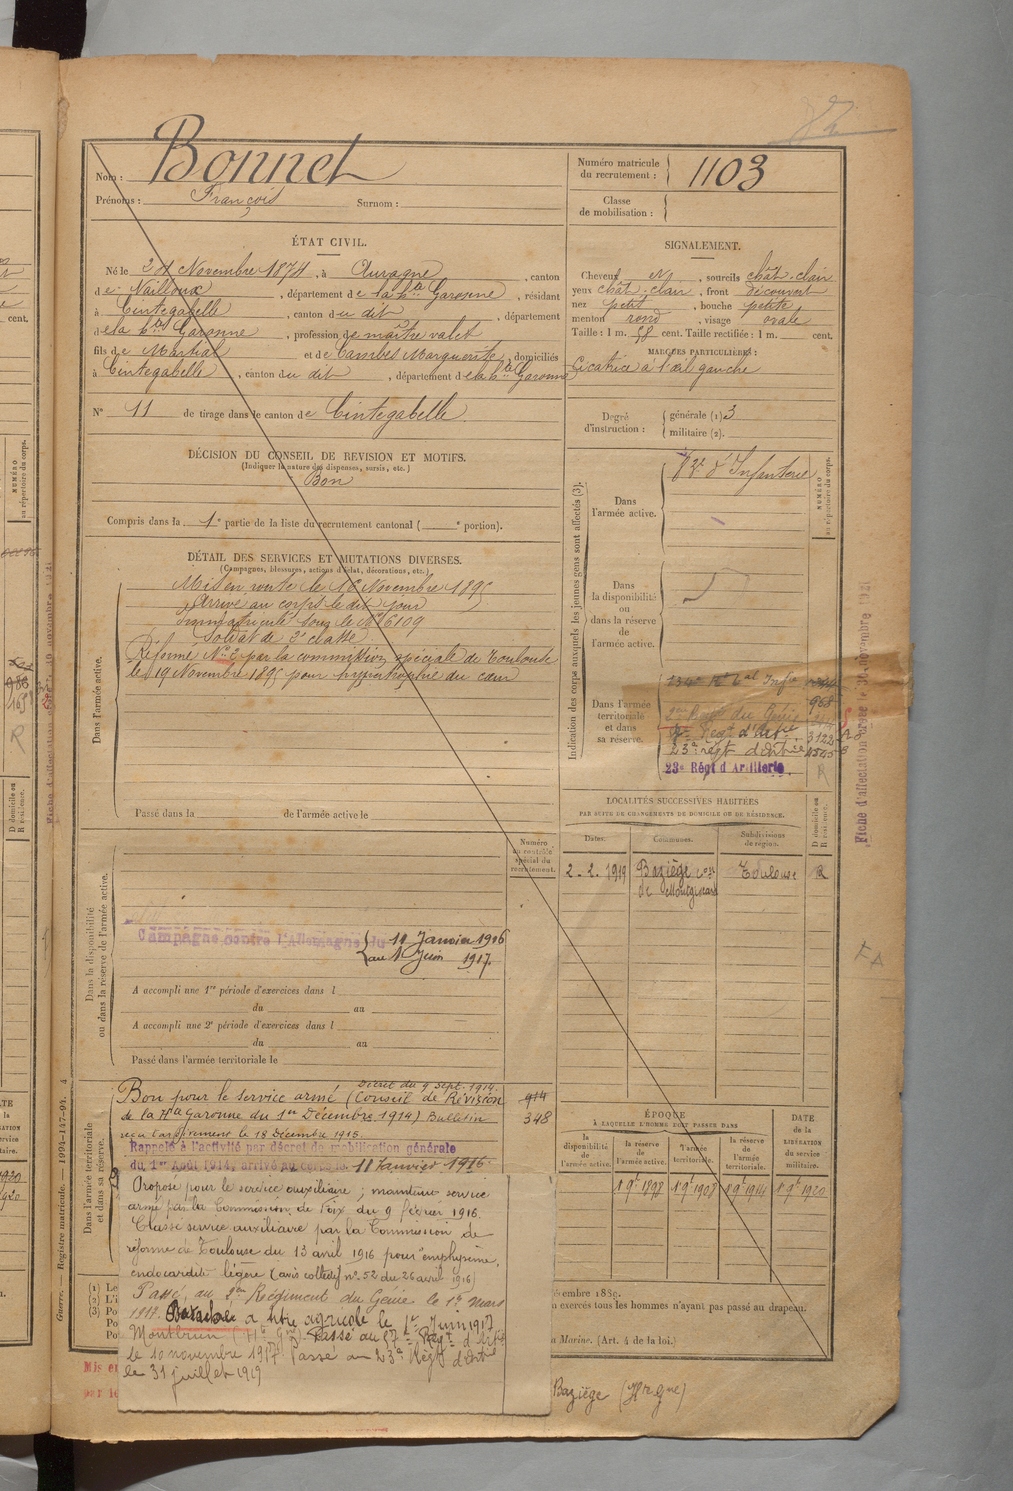 Nom : Bonnet
Prénoms : François Surnom :
Numéro matricule du recrutement : 1103
Classe de mobilisation :
ÉTAT CIVIL.
Né le Novembre 1874, à Auragne, canton
de Nailloux, département de la Hte Garonne, résidant
à Cintegabelle, canton du dit, département
de la Hte Garonne, profession de maître valet
fils de Martial et de Cambes Marguerite, domiciliés
à Cintegabelle, canton du dit, département de la Hte Garonne
N° 11 de tirage dans le canton de Cintegabelle
DÉCISION DU CONSEIL DE REVISION ET MOTIFS.
(Indiquer la nature des dispenses, sursis, etc.)
Bon
Compris dans la 1e partie de la liste du recrutement cantonal ( e portion).
SIGNALEMENT.
Cheveux , sourcils chât-clair
yeux chât-clair, front découvert
nez petit, bouche petite
menton rond, visage ovale
Taille : 1 m. 58 cent. Taille rectifiée : 1 m. cent.
MARQUES PARTICULIÈRES :
Cicatrice à l'œil gauche
Degré d'instruction : générale (1) 3
militaire (2).
DÉTAIL DES SERVICES ET MUTATIONS DIVERSES.
(Campagnes, blessures, actions d'éclat, décorations, etc.)
Dans l'armée active.
Mis en route le 16 Novembre 1895
Arrivé au corps le dit jour
Immatriculé sous le No 6109
Soldat de 2e classe
Réformé No 2 par la commission spéciale de Toulouse
le 19 Novembre 1895 pour hypertrophie du cœur
Passé dans la de l'armée active le
Numéro au contrôle spécial du recrutement.
Dans la disponibilité ou dans la réserve de l'armée active.
Campagne contre l'Allemagne du 11 Janvier 1916
au 1 Juin 1917.
A accompli une 1re période d'exercices dans l
du au
A accompli une 2e période d'exercices dans l
du au
Passé dans l'armée territoriale le
Dans l'armée territoriale et dans sa réserve.
Décret du 9 Sept. 1914.
Bon pour le service armé (Conseil de Révision
de la Hte Garonne du 1er Décembre 1914) Bulletin
914
348
Rappelé à l'activité par décret de mobilisation générale
du 1er Août 1914, arrivé au corps le 11 Janvier 1916.
Proposé pour le service auxiliaire ; maintenu service
armé par la Commission de Foix du 9 février 1916.
Classé service auxiliaire par la Commission de
réforme de Toulouse du 13 avril 1916 pour "emphysème,
endocardite légère (avis collectif no 52 du 26 avril 1916)
Passé au 2me Régiment du Génie le 1er mars
1917. Détaché à titre agricole le 1er Juin 1917
Montbrun (Hte Gne) Passé au 57e Régt d'Artie
le 10 novembre 1917 Passé au 23e Régt d'Artie
le 31 juillet 1919
Indication des corps auxquels les jeunes gens sont affectés (3).
NUMÉRO au répertoire du corps.
Dans l'armée active.
83e d'Infanterie
Dans la disponibilité ou dans la réserve de l'armée active.
Dans l'armée territoriale et dans sa réserve.
134e Rt tal Infie
2me Régt du Génie
Régt d'Artie 3122
23e régt d'Artie
23e Régt d'Artillerie.
LOCALITÉS SUCCESSIVES HABITÉES
PAR SUITE DE CHANGEMENTS DE DOMICILE OU DE RÉSIDENCE.
Dates. Communes. Subdivisions de région. D domicile ou R résidence.
2-2. 1919 Baziège Toulouse R
de Montgiscard
ÉPOQUE
À LAQUELLE L'HOMME DOIT PASSER DANS
DATE de la LIBÉRATION du service militaire.
la disponibilité de l'armée active. la réserve de l'armée active. l'armée territoriale. la réserve de l'armée territoriale.
1 9e 1898 1 9e 1908 1 9e 1914 1 9e 1920
embre 1889.
n exercés tous les hommes n'ayant pas passé au drapeau.
Marine. (Art. 4 de la loi.)
Baziège (Hte Gne)
Guerre. — Registre matricule. — 1094-147-94. 4